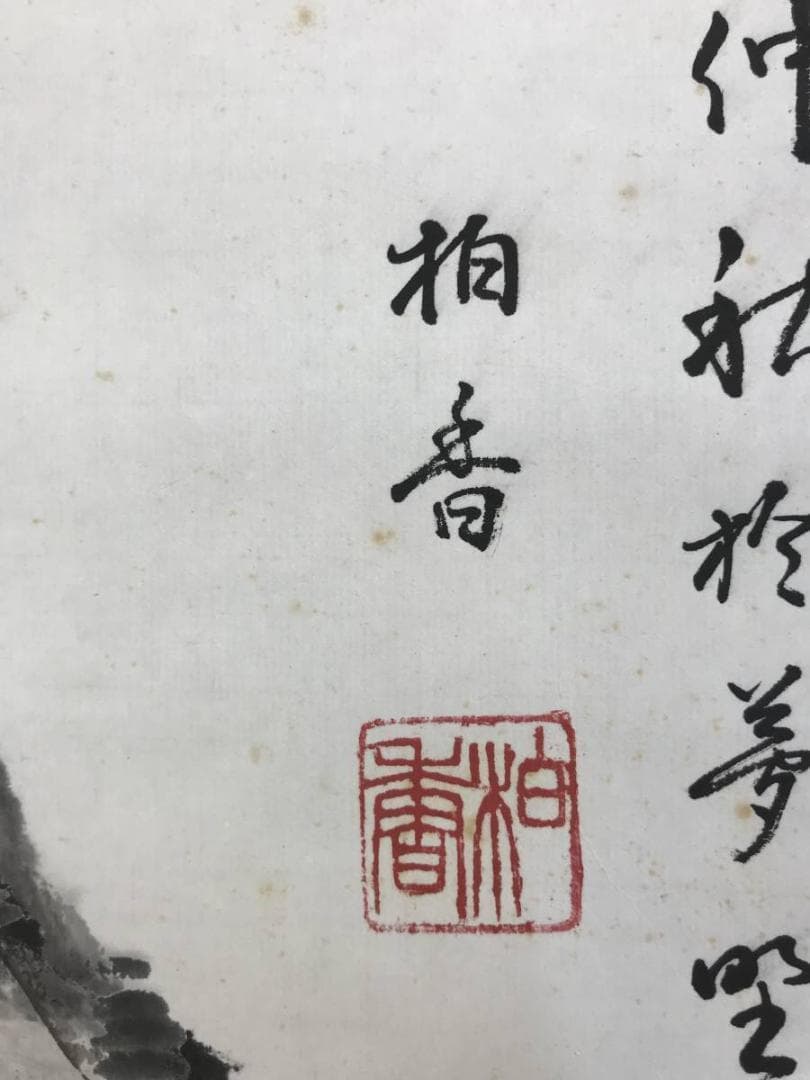 仲秋於夢
柏香
柏香